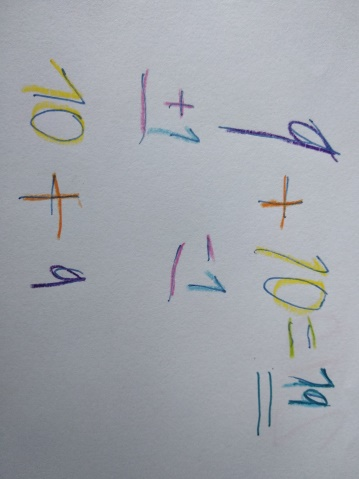 9 + 10 = 19
+1 -1
10 + 9